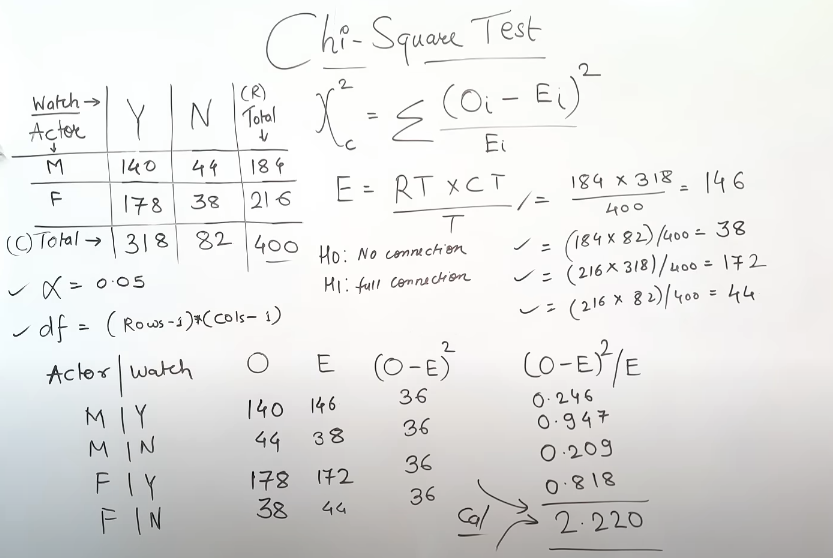 Chi-Square Test
Watch → Y N (R) Total ↓
Actor ↓
M 140 44 184
F 178 38 216
(C) Total → 318 82 400
χ²c = Σ (Oi - Ei)² / Ei
E = RT × CT / T /= 184 × 318 / 400 = 146
✓ = (184 × 82)/400 = 38
✓ = (216 × 318)/400 = 172
✓ = (216 × 82)/400 = 44
H0: No connection
H1: full connection
✓ α = 0.05
✓ df = (Rows-1)*(cols-1)
Actor | Watch O E (O-E)² (O-E)²/E
M | Y 140 146 36 0.246
M | N 44 38 36 0.947
F | Y 178 172 36 0.209
F | N 38 44 36 0.818
Cal 2.220